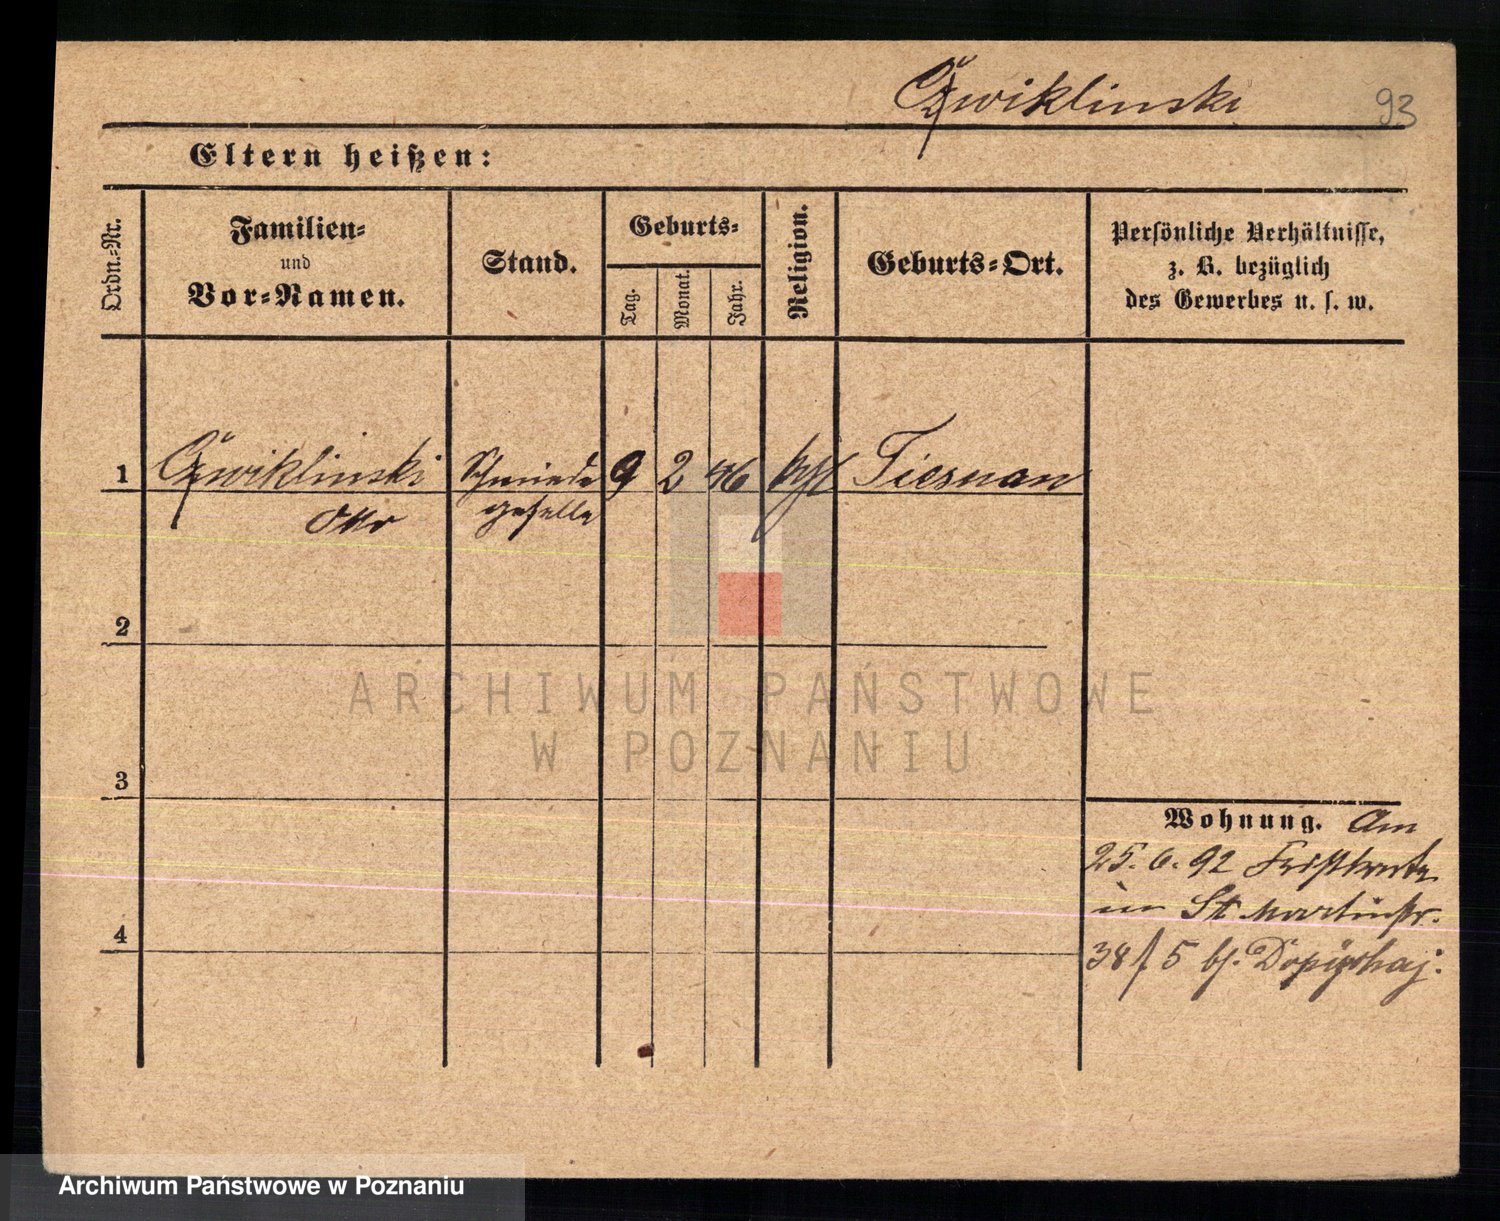 Czwiklinski 93
Eltern heißen:
Ordn.-Nr.
Familien-
und
Vor-Namen.
Stand.
Geburts-
Tag.
Monat.
Jahr.
Religion.
Geburts-Ort.
Persönliche Verhältnisse,
z. B. bezüglich
des Gewerbes u. s. w.
1 Czwiklinski Schmiede 9 2 46 kath
Otto geselle
2
3
4
Wohnung. Am
25. 6. 92
in St Martinstr.
38/5 bei
ARCHIWUM PAŃSTWOWE
W POZNANIU
Archiwum Państwowe w Poznaniu